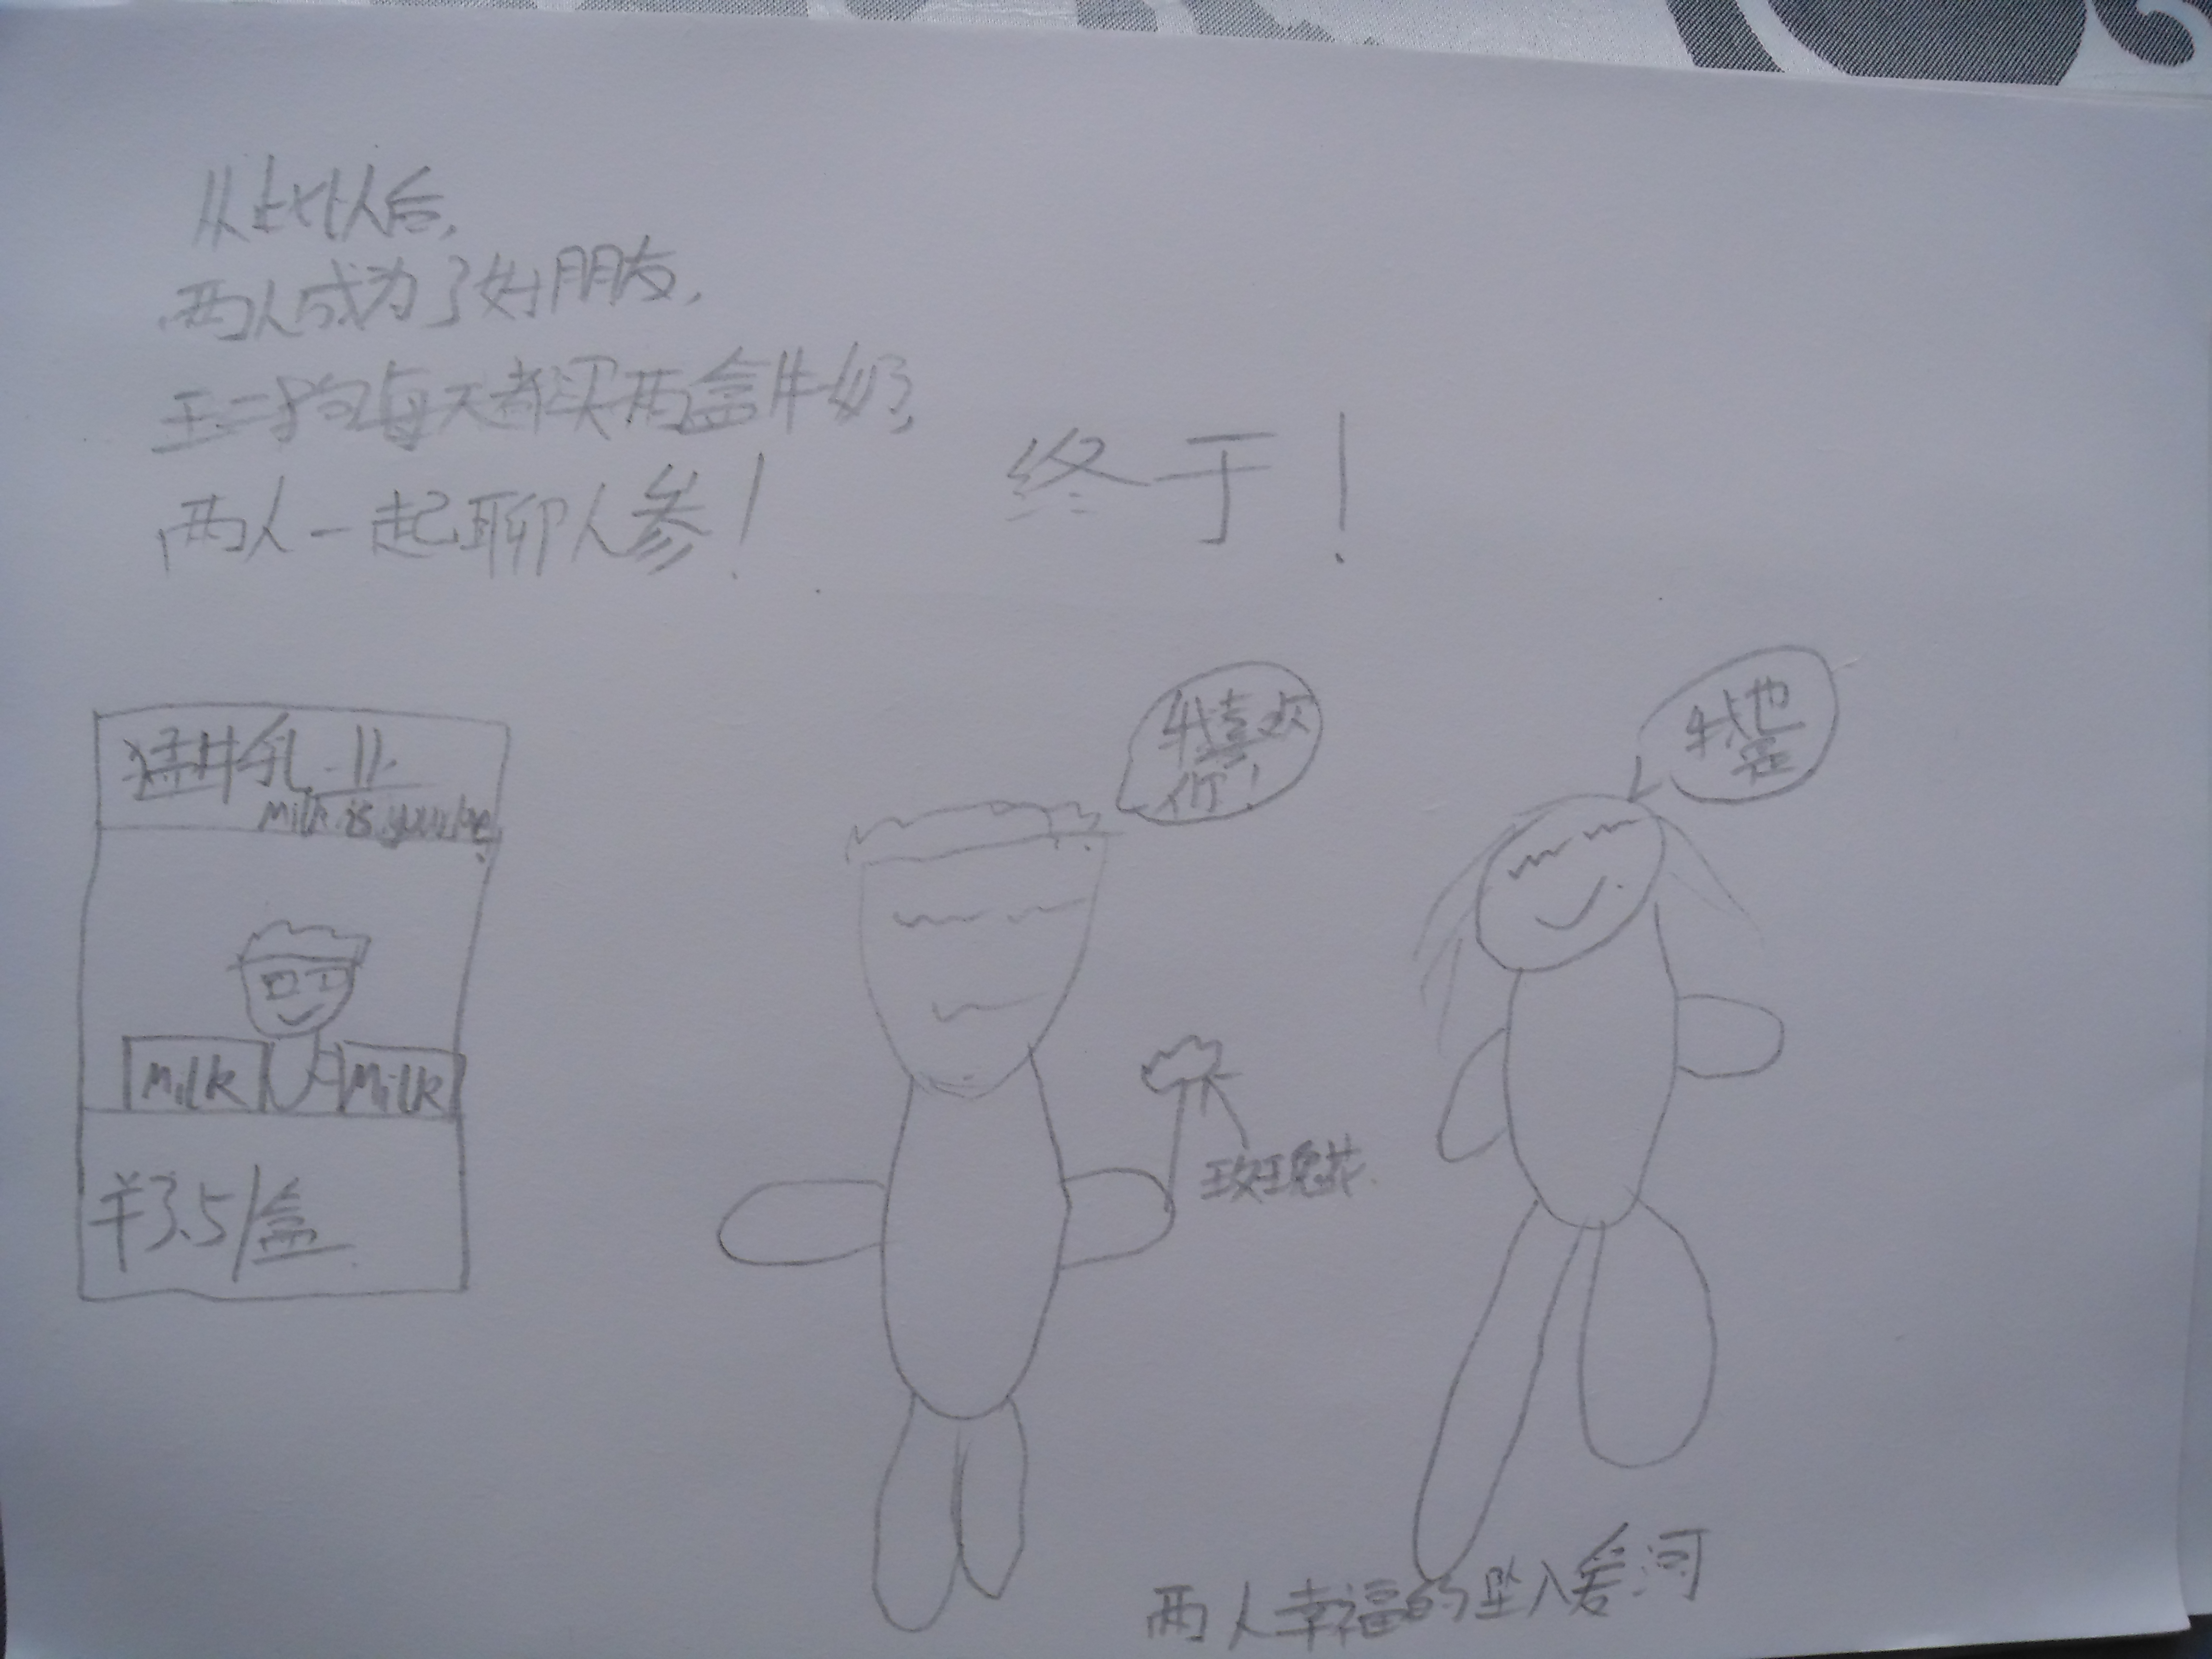 从此以后,
两人成为了好朋友,
王二狗每天都买两盒牛奶,
两人一起聊人参!
终于!
猛牛乳业
Milk is your
我喜欢
你!
我也
是
Milk
Milk
玫瑰花.
¥3.5/盒
两人幸福的坠入爱河